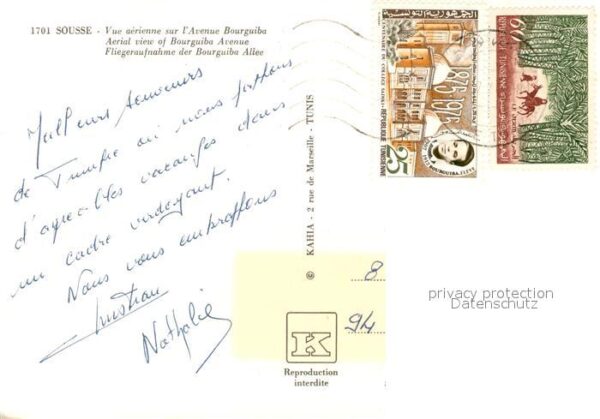 1701 SOUSSE - Vue aérienne sur l'Avenue Bourguiba
Aerial view of Bourguiba Avenue
Fliegeraufnahme der Bourguiba Allee
Meilleurs souvenirs
de Tunisie où nous passons
d'agréables vacances dans
un cadre verdoyant.
Nous vous embrassons
Christian
Nathalie
© KAHIA - 2 rue de Marseille - TUNIS
K
Reproduction
interdite
8
94
الجمهورية التونسية
1875-1975
REPUBLIQUE TUNISIENNE
25
H. BOURGUIBA, ELEVE
60
REPUBLIQUE TUNISIENNE
privacy protection
Datenschutz